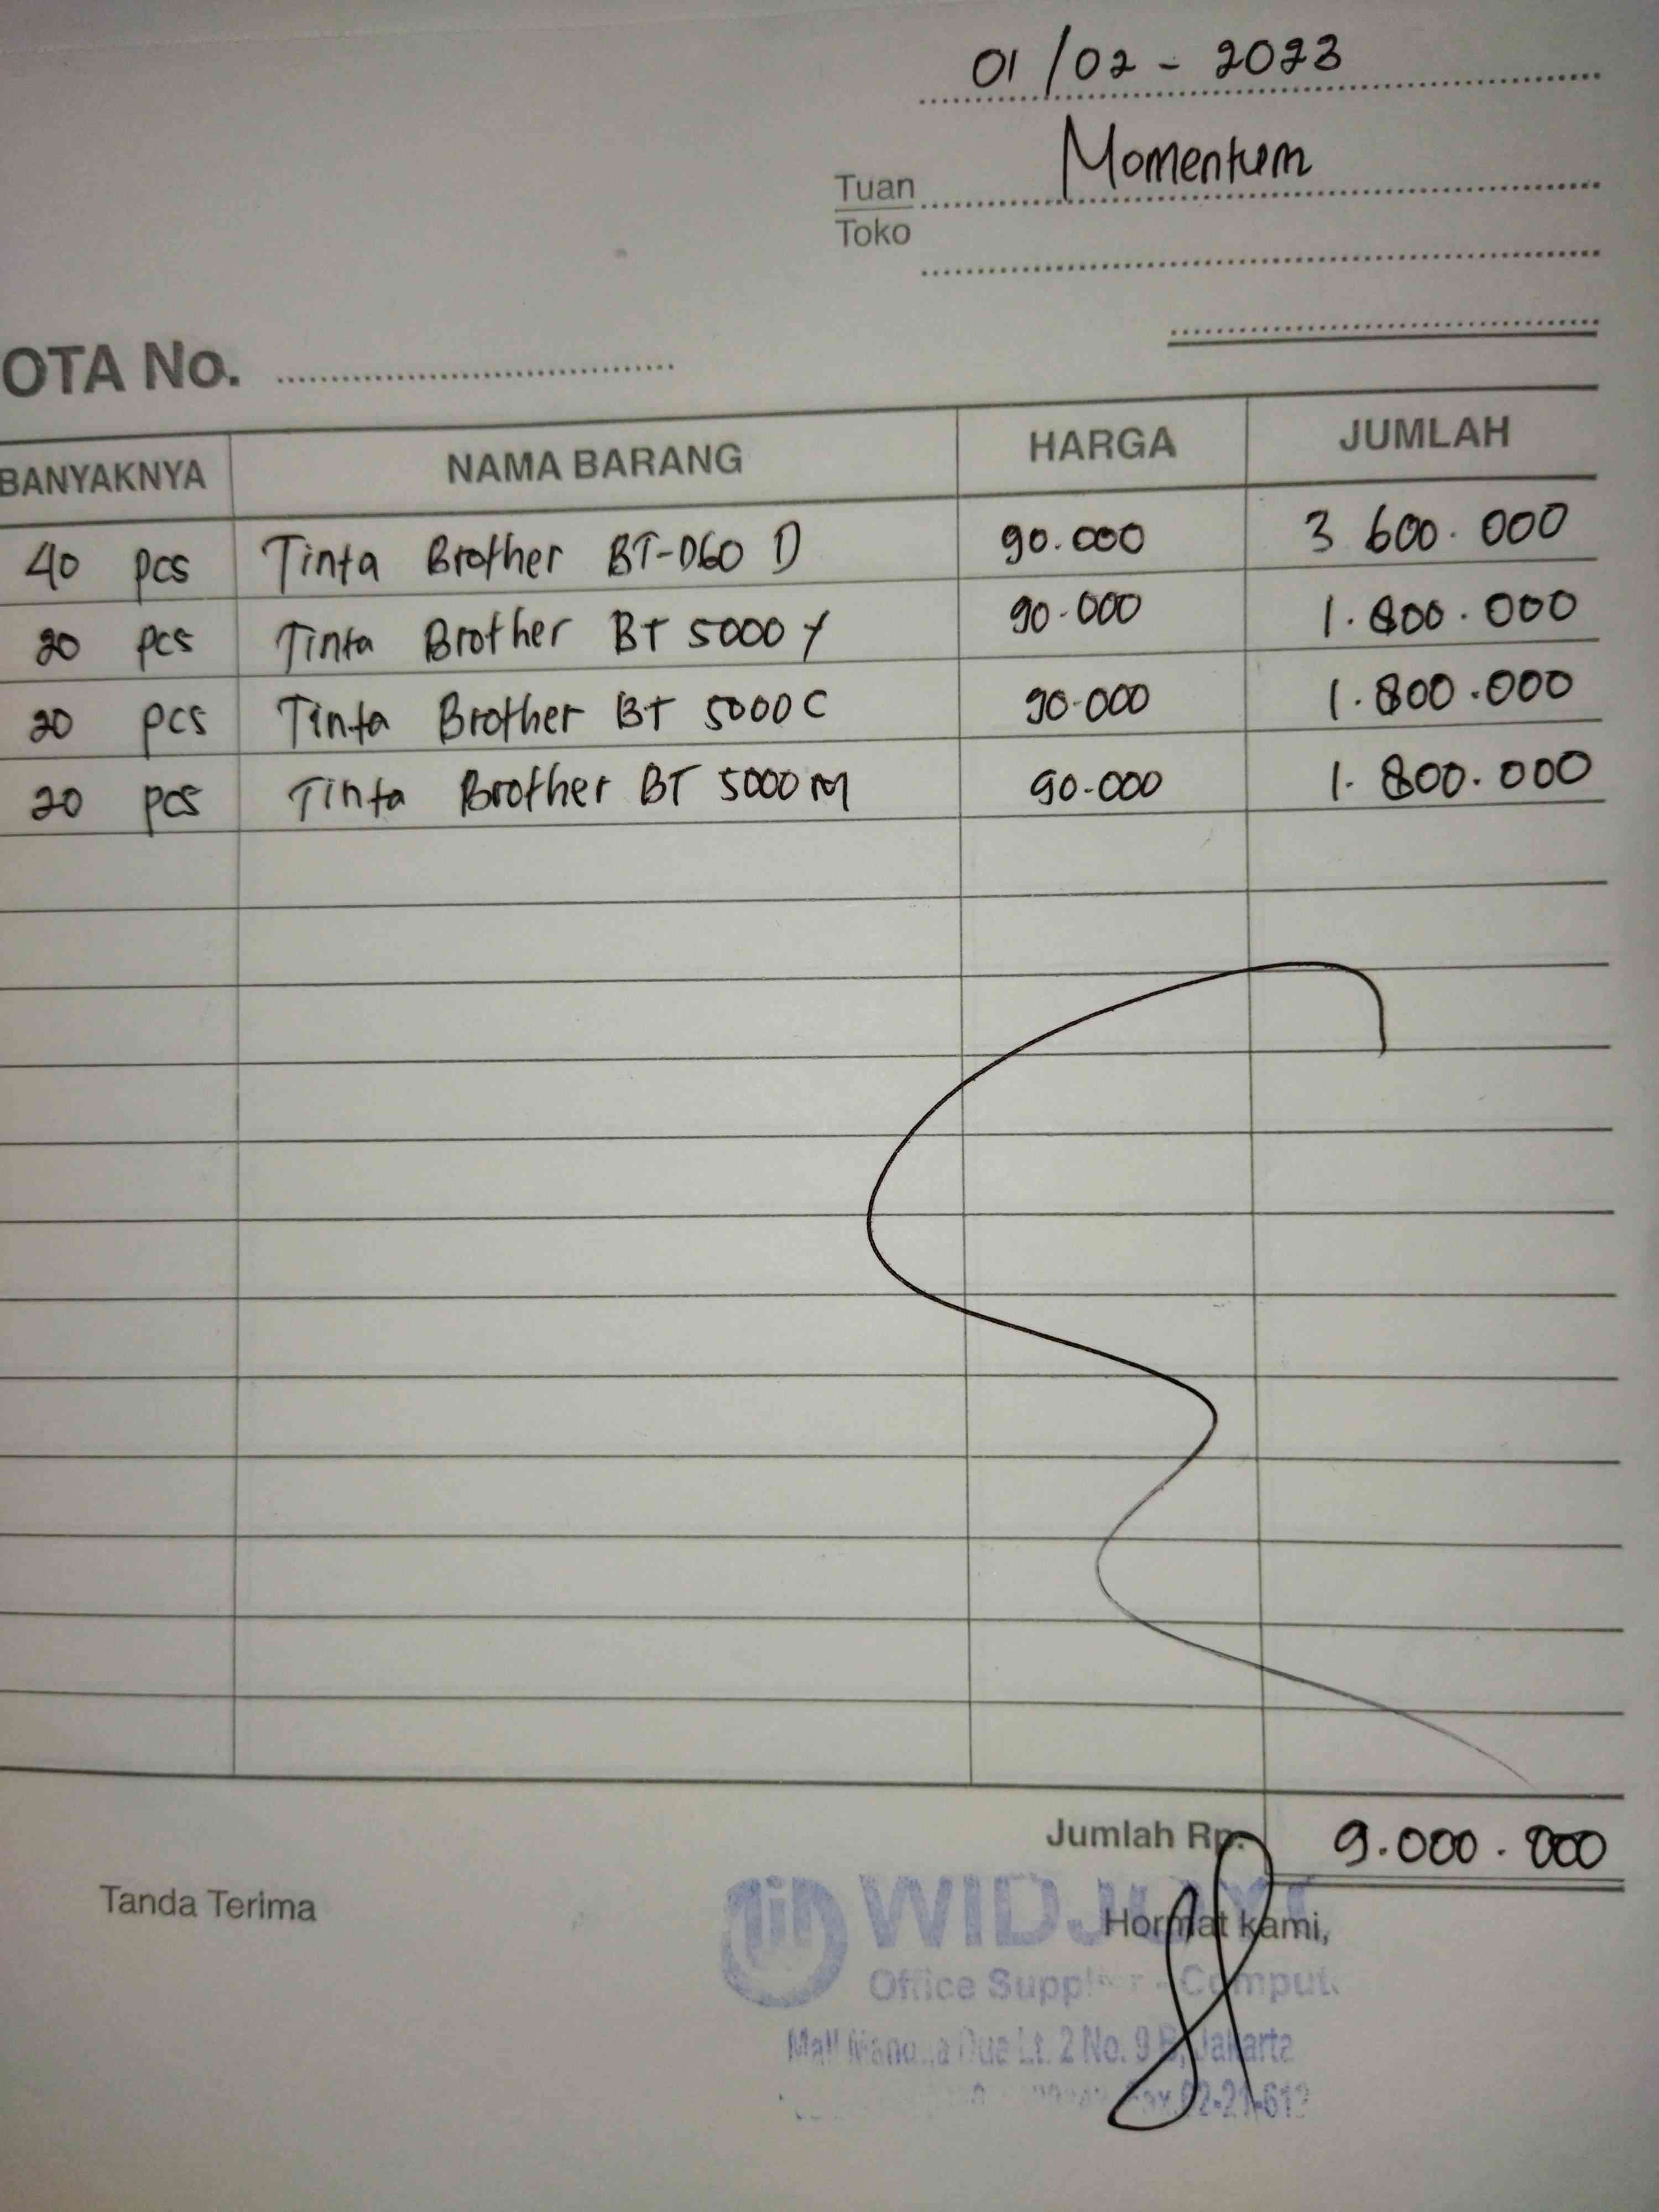 01/02 - 2023
Tuan Momentum
Toko
OTA No.
BANYAKNYA NAMA BARANG HARGA JUMLAH
40 pcs Tinta Brother BT-D60 D 90.000 3 600.000
20 pcs Tinta Brother BT 5000 Y 90.000 1.800.000
20 pcs Tinta Brother BT 5000 C 90.000 1.800.000
20 pcs Tinta Brother BT 5000 M 90.000 1.800.000
Jumlah Rp. 9.000.000
Tanda Terima
Hormat kami,
Office
Lt. 2 No. 9 B, Jakarta